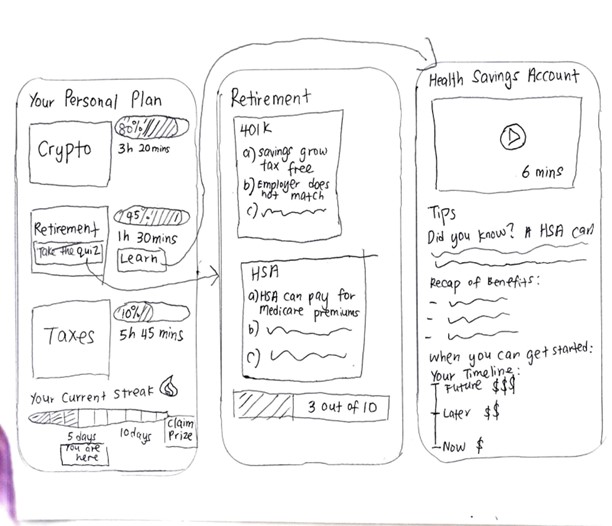 Your Personal Plan
Crypto
80%
3h 20mins
Retirement
Take the quiz
95%
1h 30mins
Learn
Taxes
10%
5h 45 mins
Your Current Streak
5 days
10days
Claim
Prize
You are
here
Retirement
401K
a) Savings grow
tax free
b) Employer does
not match
c)
HSA
a) HSA can pay for
Medicare premiums
b)
c)
3 out of 10
Health Savings Account
6 mins
Tips
Did you know? A HSA can
Recap of Benefits:
-
-
-
When you can get started:
Your Timeline:
Future $$$
Later $$
Now $